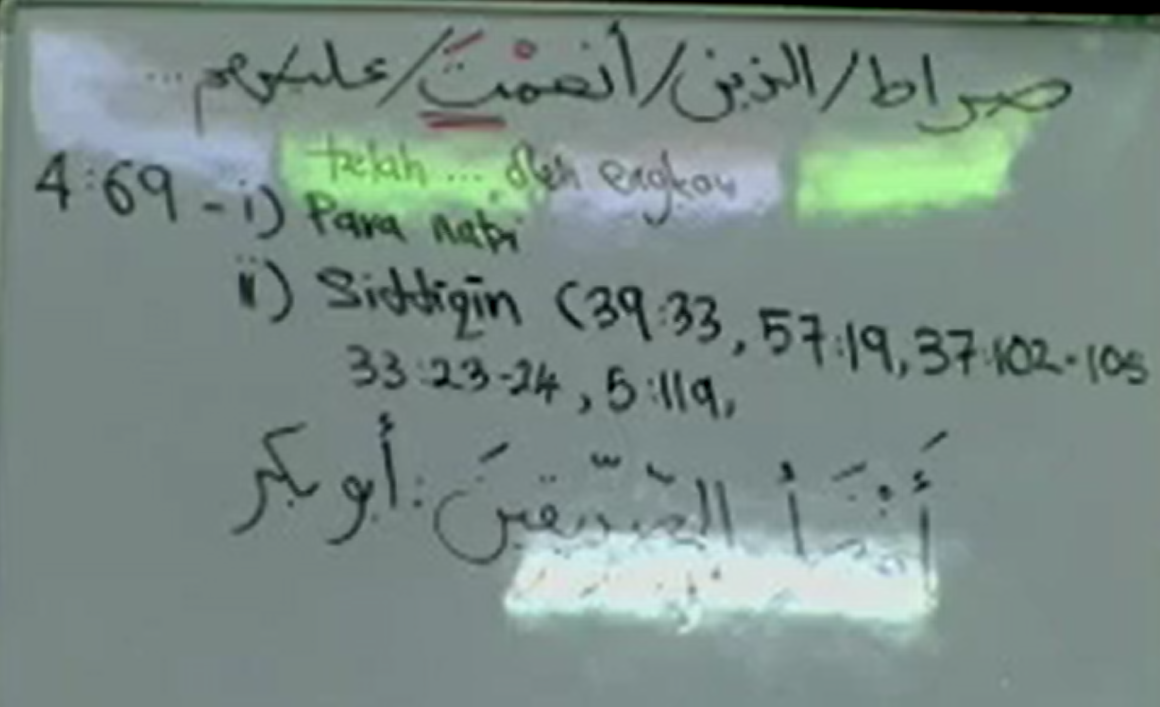 صراط/الذين/أنعمْتَ/عليهم...
telah ... oleh engkau
4:69 - i) Para nabi
ii) Siddiqin (39:33, 57:19, 37:102-105
33:23-24, 5:119,
الصدّيقينَ: أبو بكر